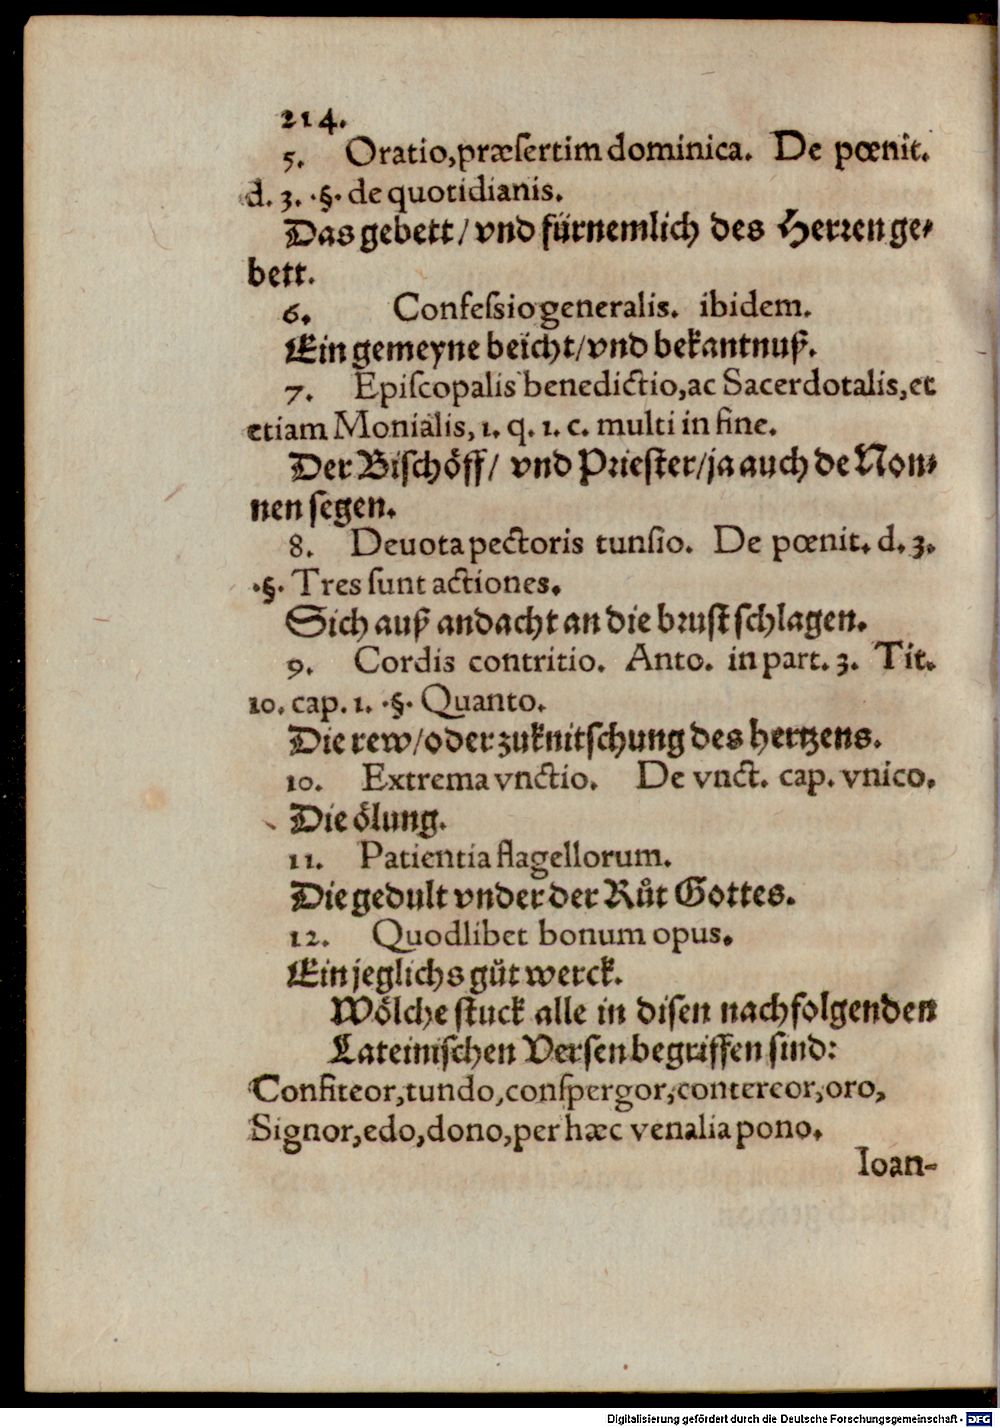 214.
5. Oratio, præſertim dominica. De pœnit.
d. 3. .§. de quotidianis.
Das gebett / vnd fürnemlich des Herꝛen ge⸗
bett.
6. Confeſsio generalis. ibidem.
Ein gemeyne beicht / vnd bekantnuß.
7. Epiſcopalis benedictio, ac Sacerdotalis, et
etiam Monialis, 1. q. 1. c. multi in fine.
Der Biſchöff / vnd Prieſter / ja auch de Non⸗
nen ſegen.
8. Deuota pectoris tunſio. De pœnit. d. 3.
.§. Tres ſunt actiones.
Sich auß andacht an die bꝛuſt ſchlagen.
9. Cordis contritio. Anto. in part. 3. Tit.
10. cap. 1. .§. Quanto.
Die rew / oder zuknitſchung des hertzens.
10. Extrema vnctio. De vnct. cap. vnico.
Die ölung.
11. Patientia flagellorum.
Die gedult vnder der Růt Gottes.
12. Quodlibet bonum opus.
Ein jeglichs gůt werck.
Wölche ſtuck alle in diſen nachfolgenden
Lateiniſchen Verſen begriffen ſind:
Confiteor, tundo, conſpergor, contereor, oro,
Signor, edo, dono, per hæc venalia pono.
Ioan-
Digitalisierung gefördert durch die Deutsche Forschungsgemeinschaft - DFG